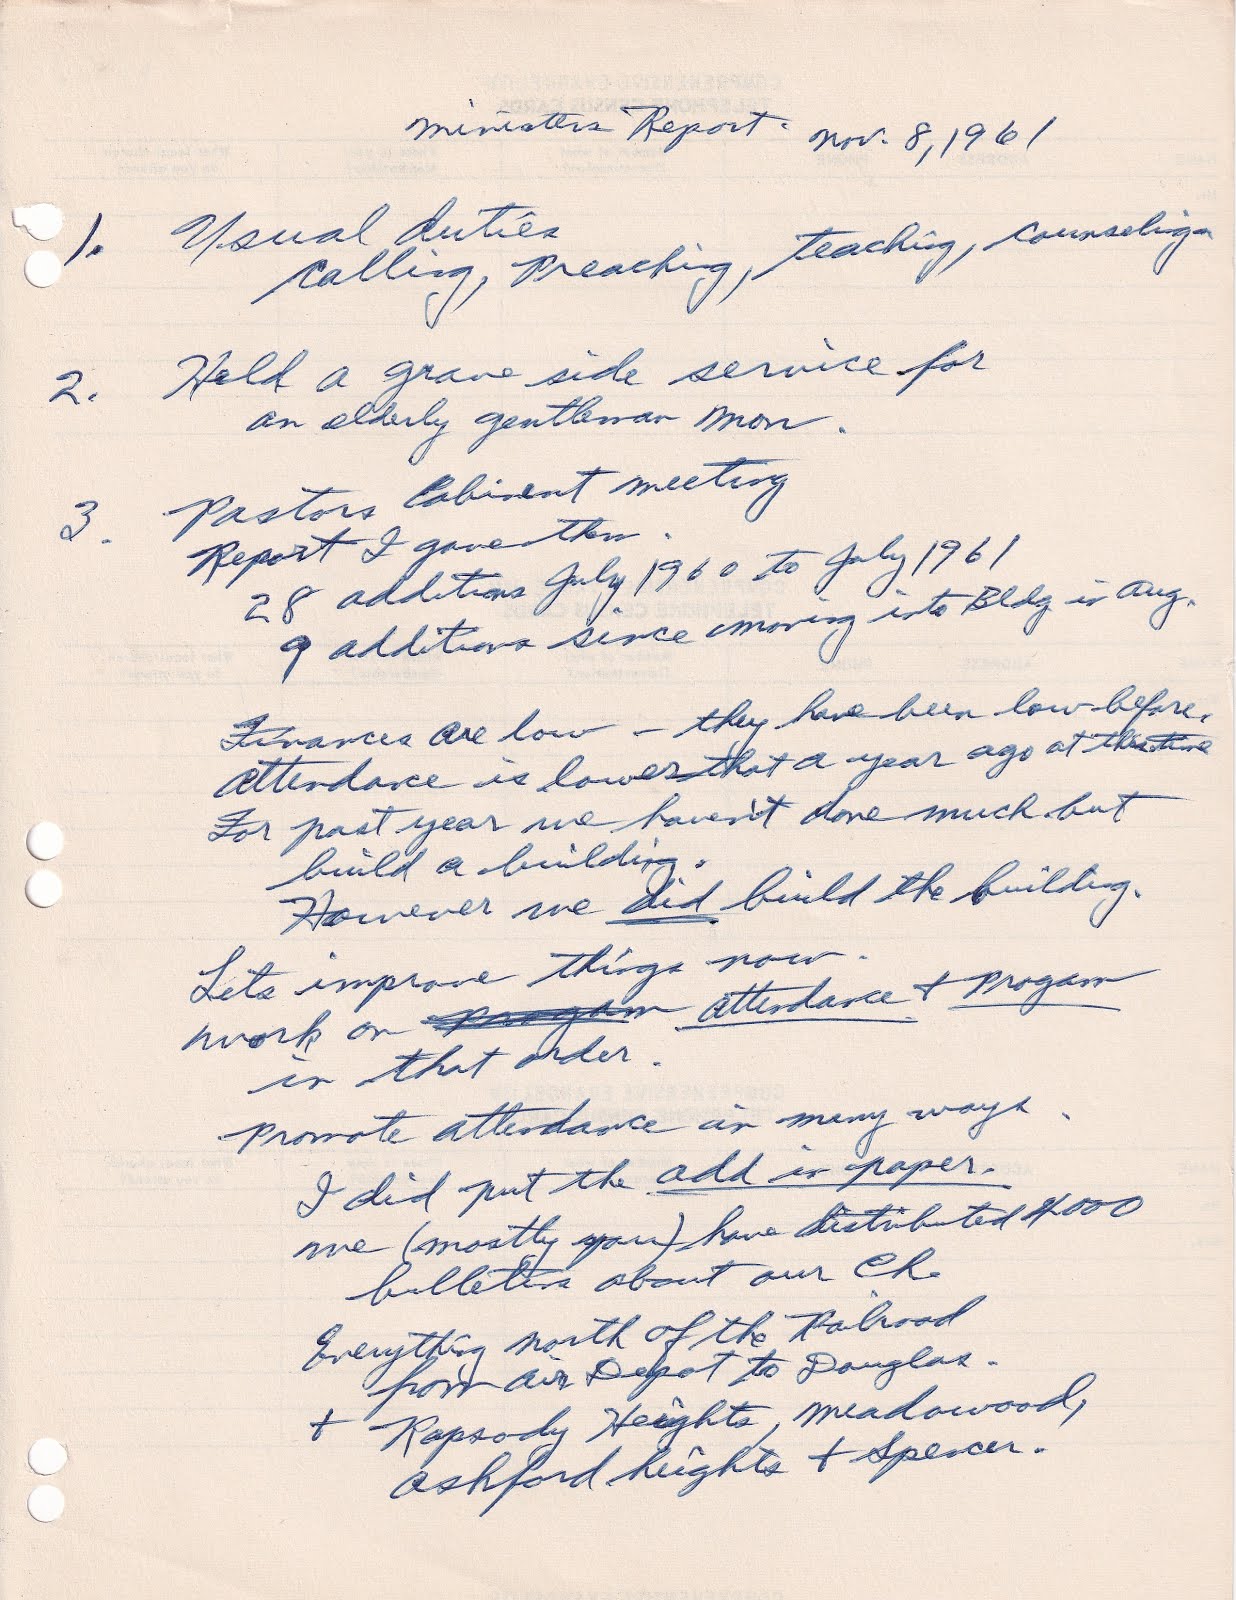 Ministers Report. Nov. 8, 1961
1. Usual duties
calling, preaching, teaching, counseling
2. Held a grave side service for
an elderly gentleman Mon.
3. Pastors Cabinent meeting
Report I gave them.
28 additions July 1960 to July 1961
9 additions since moving into Bldg in Aug.
Finances are low – they have been low before.
attendance is lower that a year ago at this time
For past year we haven't done much but
build a building.
However we did build the building.
Lets improve things now.
work on Progam attendance + Progam
in that order.
Promote attendance in many ways.
I did put the add in paper.
we (mostly you) have distributed 4000
bulletins about our Ch.
Everything north of the Railroad
from Air Depot to Douglas.
+ Rapsody Heights, Meadowood,
Ashford heights + Spencer.